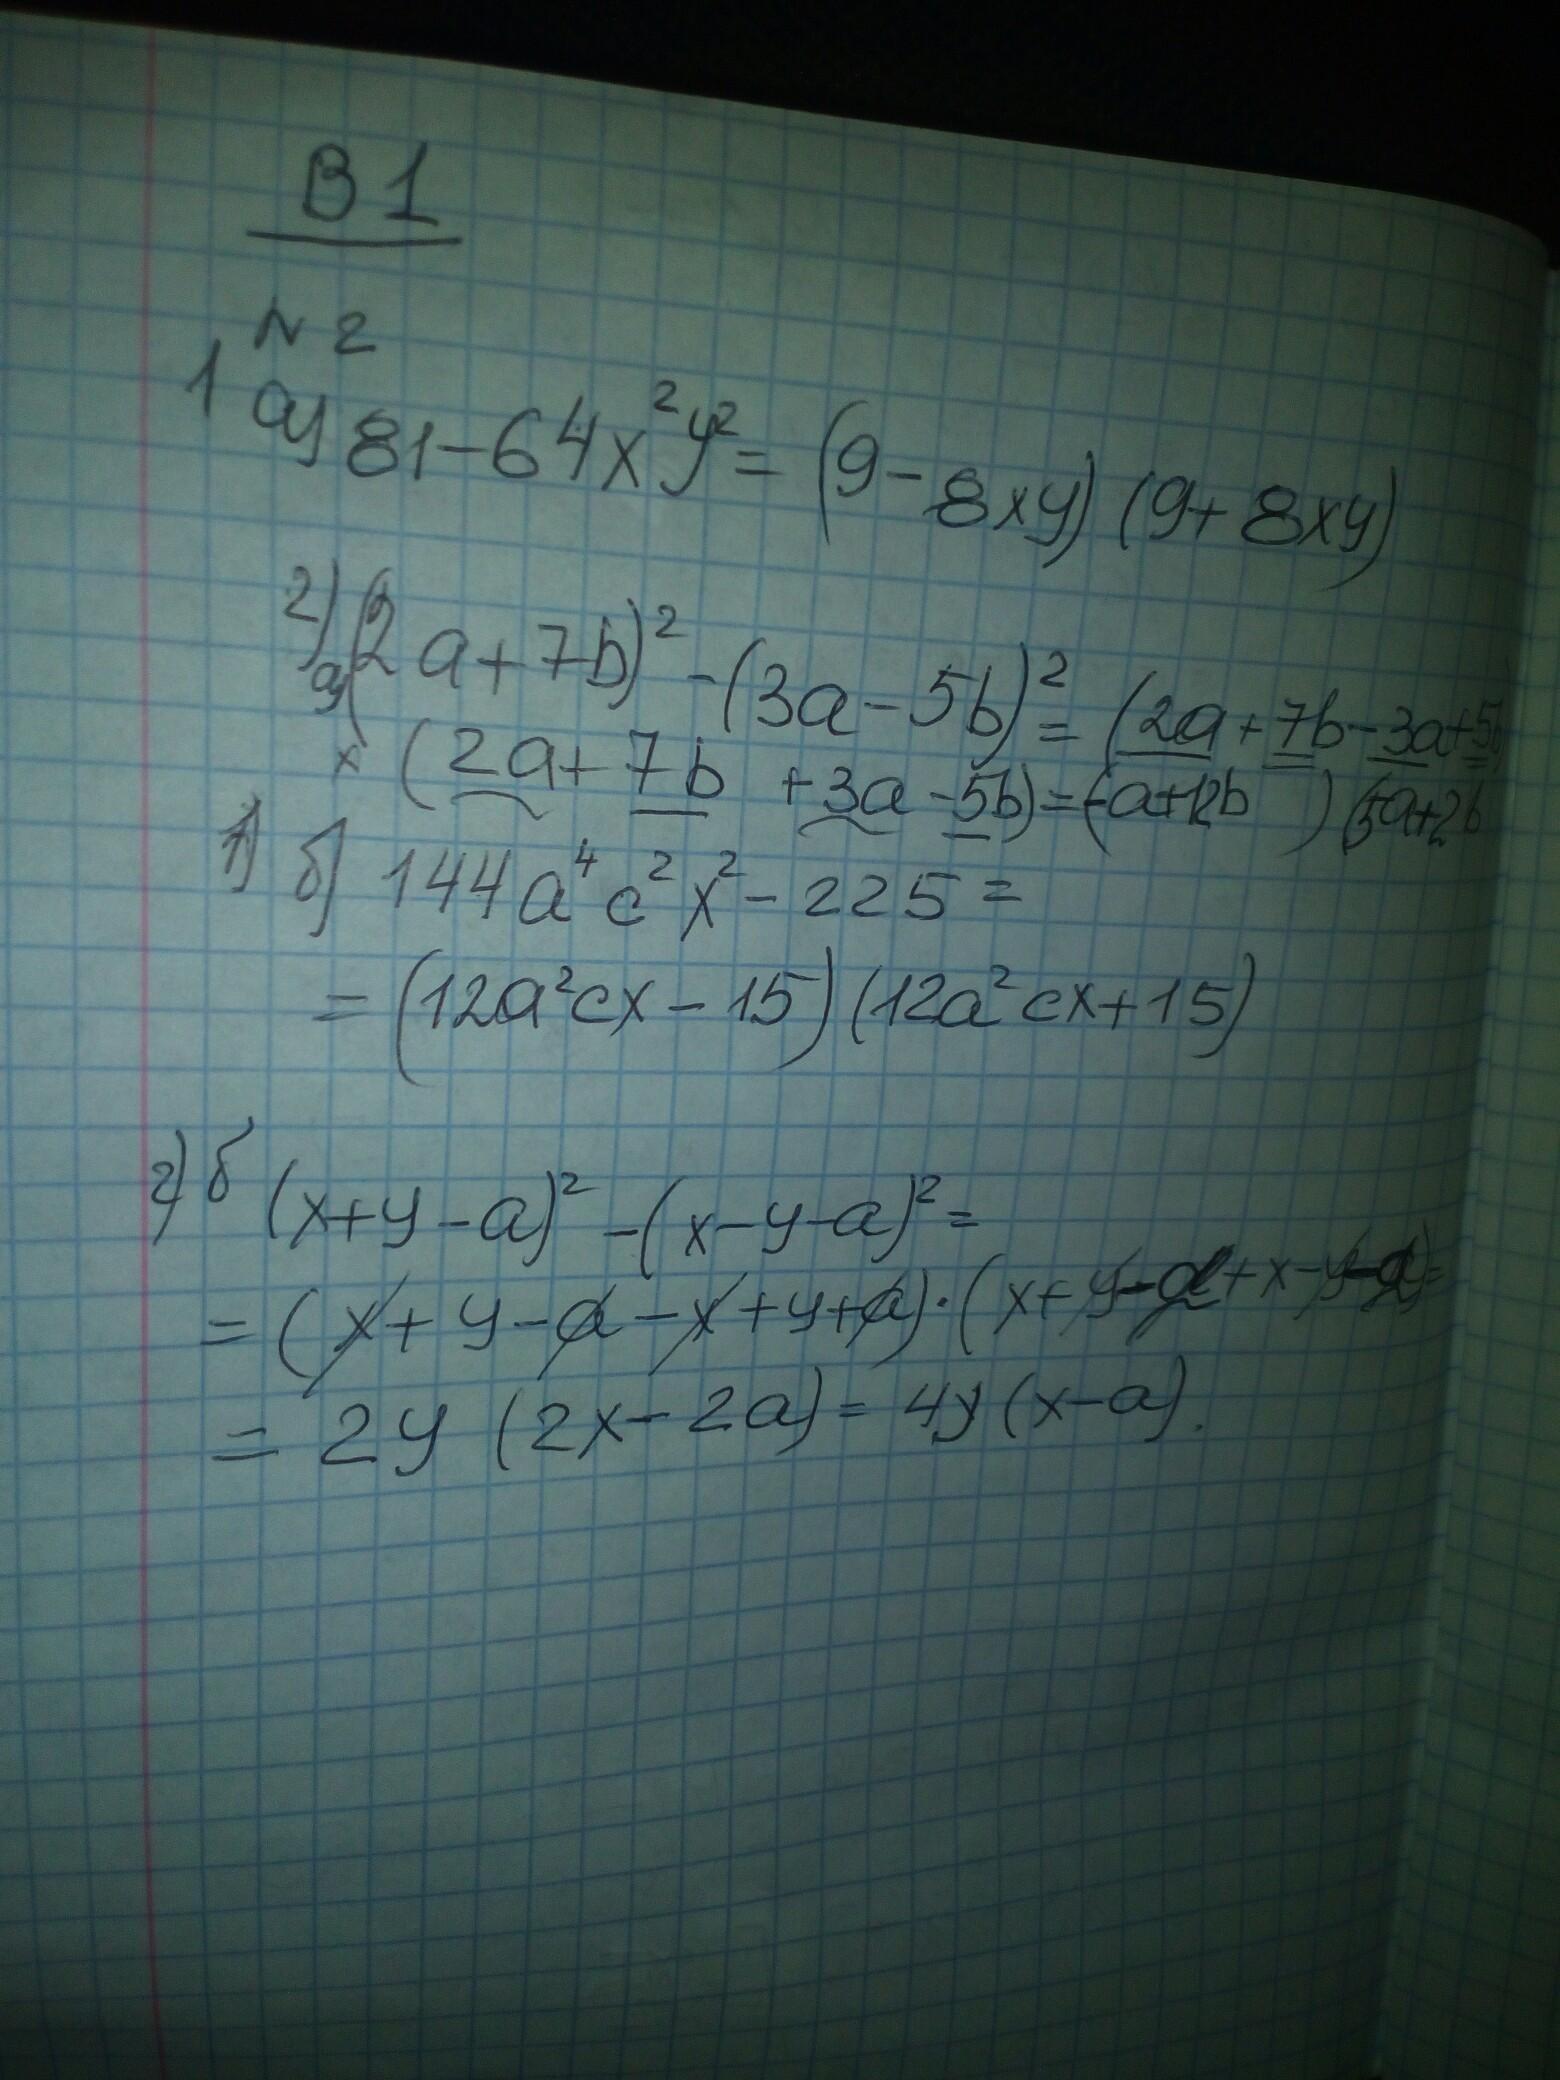 В 1
№ 2
1 а) 81-64x²y²= (9-8xy) (9+8xy)
2) а) (2a+7b)² -(3a-5b)² = (2a+7b-3a+5b)
× (2a+7b +3a-5b)=(-a+12b ) (5a+2b
1) б) 144a⁴c²x²-225=
=(12a²cx-15) (12a²cx+15)
2) б (x+y-a)² -(x-y-a)²=
=(x+y-a-x+y+a)·(x+y-a+x-y-a)=
= 2y (2x-2a)= 4y(x-a).